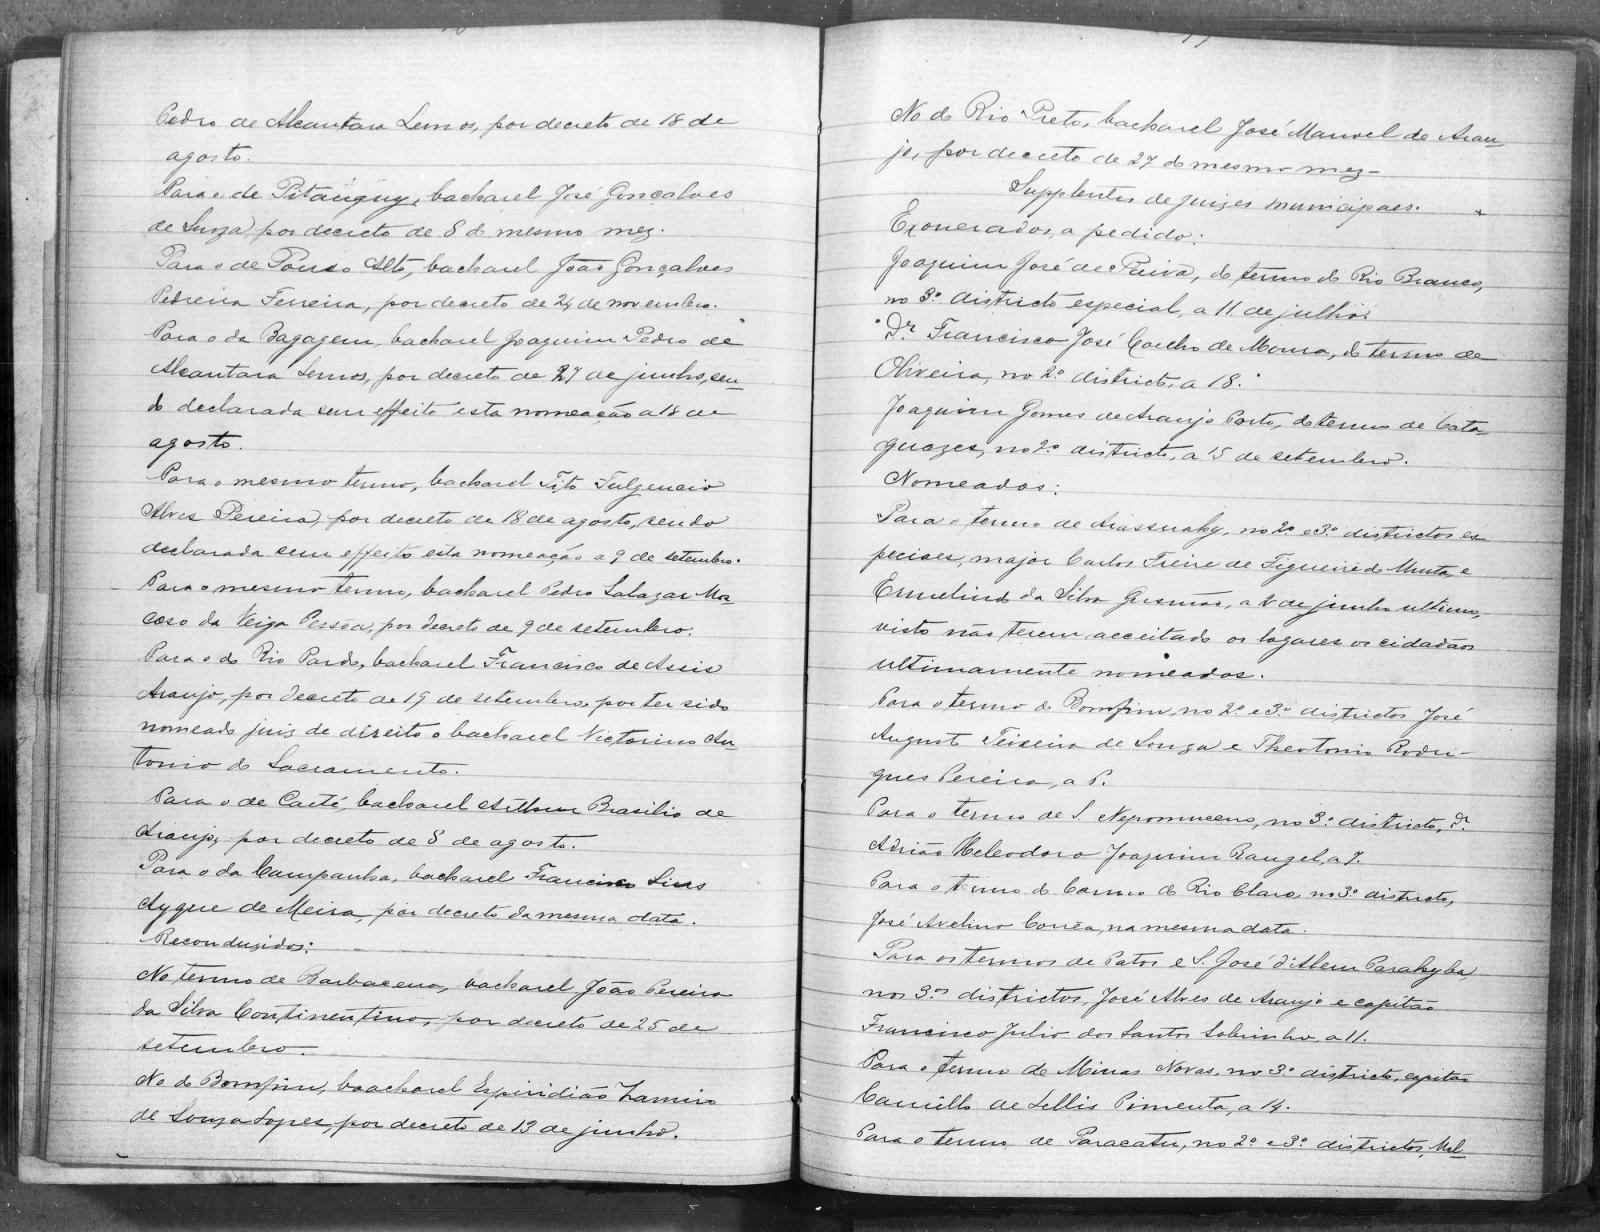 Pedro de Alcantara Lemos, por decreto de 18 de
agosto.
Para o de Pitanguy, bacharel José Gonçalves
de Souza, por decreto de 8 do mesmo mez.
Para o de Pouso Alto, bacharel João Gonçalves
Pedreira Ferreira, por decreto de 24 de novembro.
Para o da Bagagem, bacharel Joaquim Pedro de
Alcantara Lemos, por decreto de 27 de junho, sen-
do declarada sem effeito esta nomeação a 18 de
agosto.
Para o mesmo termo, bacharel Tito Fulgencio
Alves Pereira, por decreto de 18 de agosto, sendo
declarada sem effeito esta nomeação a 9 de setembro.
Para o mesmo termo, bacharel Pedro Salazar Mos-
coso da Veiga Pessôa, por decreto de 9 de setembro.
Para o do Rio Pardo, bacharel Francisco de Assis
Araujo, por decreto de 19 de setembro, por ter sido
nomeado juiz de direito o bacharel Victorino An
tonio do Sacramento.
Para o de Caeté, bacharel Arthur Brasilio de
Araujo, por decreto de 8 de agosto.
Para o da Campanha, bacharel Francisco Lins
Ayque de Meira, por decreto da mesma data.
Reconduzidos:
No termo de Barbacena, bacharel João Pereira
da Silva Continentino, por decreto de 25 de
setembro.
No do Bomfim, baacharel Espiridião Zamiro
de Souza Lopes, por decreto de 13 de junho.
No do Rio Preto, bacharel José Manoel de Arau
jo, por decreto de 27 do mesmo mez-
Supplentes de juizes municipaes.
Exonerados, a pedido:
Joaquim José de Paiva, do termo do Rio Branco,
no 3º districto especial, a 11 de julho;
Dr Francisco José Coelho de Moura, do termo de
Oliveira, no 2º districto, a 18.
Joaquim Gomes de Araujo Porto, do termo de Cata-
guazes, no 2º districto, a 15 de setembro.
Nomeados:
Para o termo de Arassuahy, no 2º e 3º districtos es-
peciaes, major Carlos Freire de Figueiredo Murta, e
Ermelindo da Silva Gusmão, a 2 de junho ultimo,
visto não terem acceitado os logares os cidadãos
ultimamente nomeados.
Para o termo do Bomfim, no 2º e 3º districtos José
Augusto Teixeira de Souza e Theotonio Rodri-
gues Pereira, a
Para o termo de S. Nepomuceno, no 3º districto, dr.
Adrião Heleodoro Joaquim Rangel, a 7.
Para o termo do Carmo do Rio Claro, no 3º districto,
José Avelino Corrêa, na mesma data.
Para os termos de Patos e S. José d'Alem Parahyba,
nos 3os districtos, José Alves de Araujo e capitão
Francisco Julio dos Santos Sobrinho, a 11.
Para o termo de Minas Novas, no 3º districto, capitão
Camillo de Lellis Pimenta, a 14.
Para o termo de Paracatu, no 2º e 3º districtos, Mel